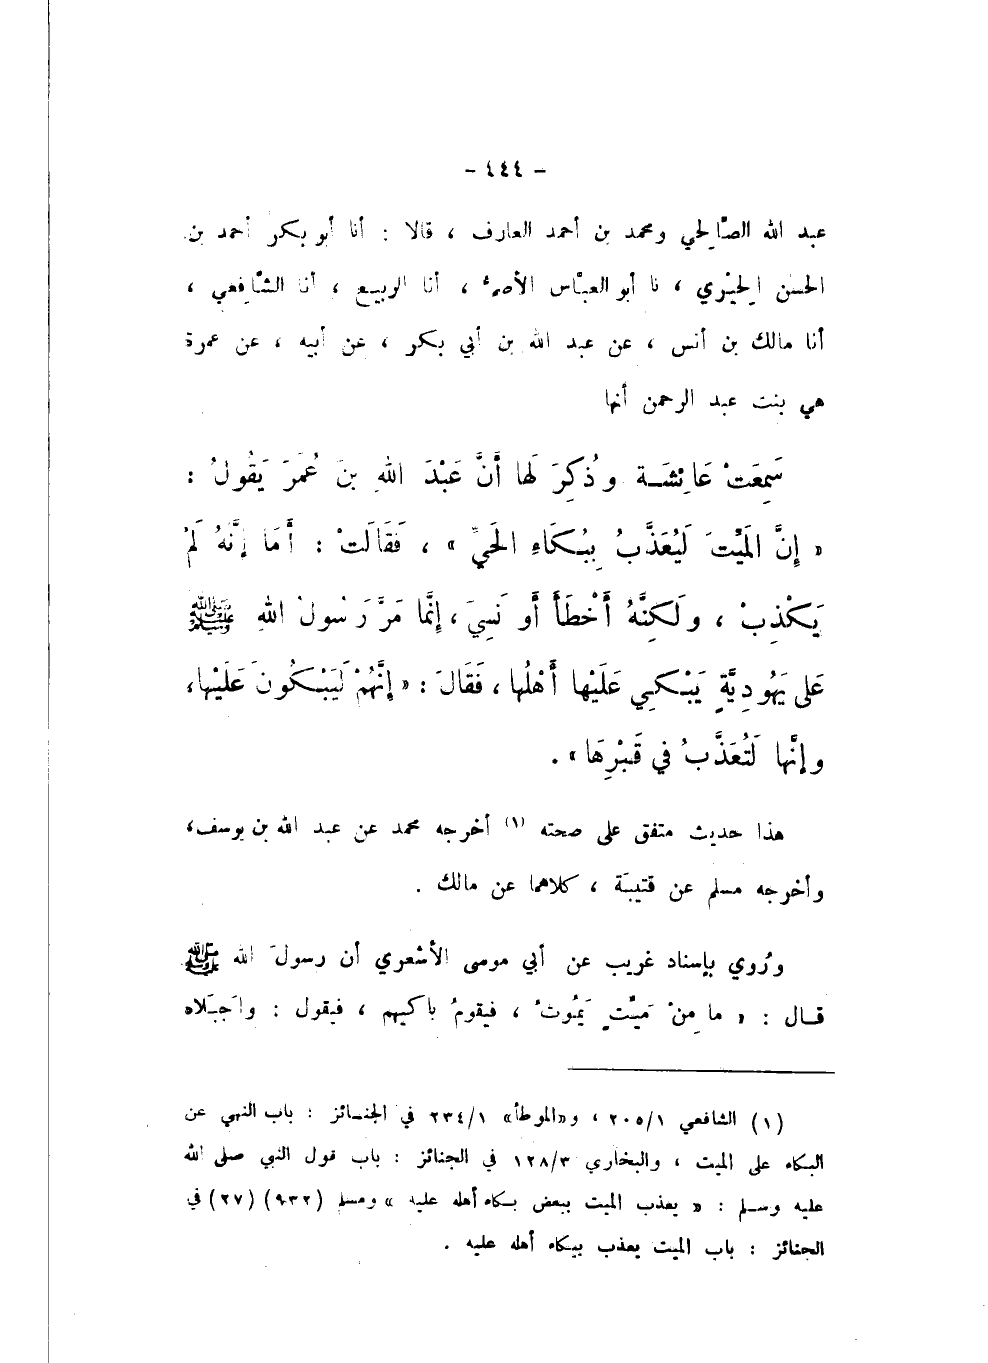 - ٤٤٤ -
عبد الله الصّالحي ومحمد بن أحمد العارف ، قالا : أنا أبو بكر أحمد بن
الحسن الحيْري ، نا أبو العبّاس الأصمُّ ، أنا الربيع ، أنا الشّافعي ،
أنا مالك بن أنس ، عن عبد الله بن أبي بكر ، عن أبيه ، عن عمرة
هي بنت عبد الرحمن أنها
سَمِعَتْ عَائِشَـة وذُكِرَ لَها أَنَّ عَبْدَ اللهِ بنَ عُمَرَ يَقُولُ :
« إِنَّ المَيِّتَ لَيُعَذَّبُ بِبُكَاءِ الحَيِّ » ، فَقَالَتْ : أَمَا إِنَّهُ لَمْ
يَكْذِبْ ، ولَكِنَّهُ أَخْطَأَ أَو نَسِيَ ، إِنَّما مَرَّ رَسُولُ اللهِ ﷺ
عَلى يَهُودِيَّةٍ يَبْكي عَلَيْها أَهْلُها ، فَقَالَ : « إِنَّهُمْ لَيَبْكُونَ عَلَيْها،
وإِنَّها لَتُعَذَّبُ في قَبْرِهَا » .
هذا حديث متفق على صحته (١) أخرجه محمد عن عبد الله بن يوسف،
وأخرجه مسلم عن قتيبَة ، كلاهما عن مالك .
ورُوي بإسناد غريب عن أبي موسى الأشعري أن رسولَ الله ﷺ
قـال : « ما مِنْ مَيِّتٍ يَمُوتُ ، فيقومُ باكيهم ، فيقول : واجَبَلاه
(١) الشافعي ٢٠٥/١ ، و«الموطأ» ٢٣٤/١ في الجنـائز : باب النهي عن
البكاء على الميت ، والبخاري ١٢٨/٣ في الجنائز : باب قول النبي صلى الله
عليه وسـلم : « يعذب الميت ببعض بـكاء أهله عليه » ومسلم (٩٣٢) (٢٧) في
الجنائز : باب الميت يعذب ببكاء أهله عليه .